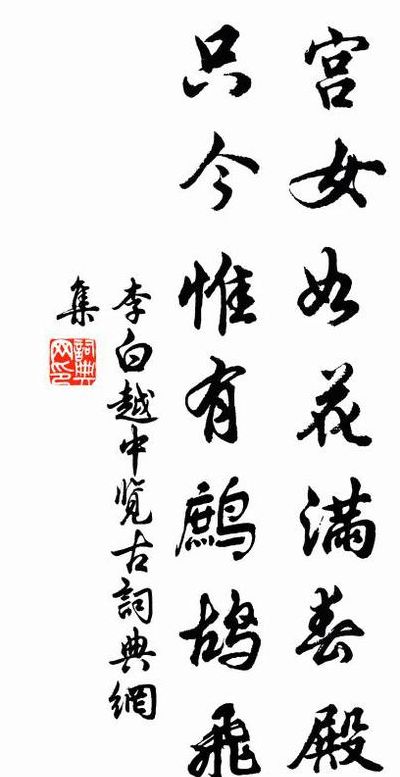 宫女如花满春殿
只今惟有鹧鸪飞
李白越中览古詞典網
集
詞典网印